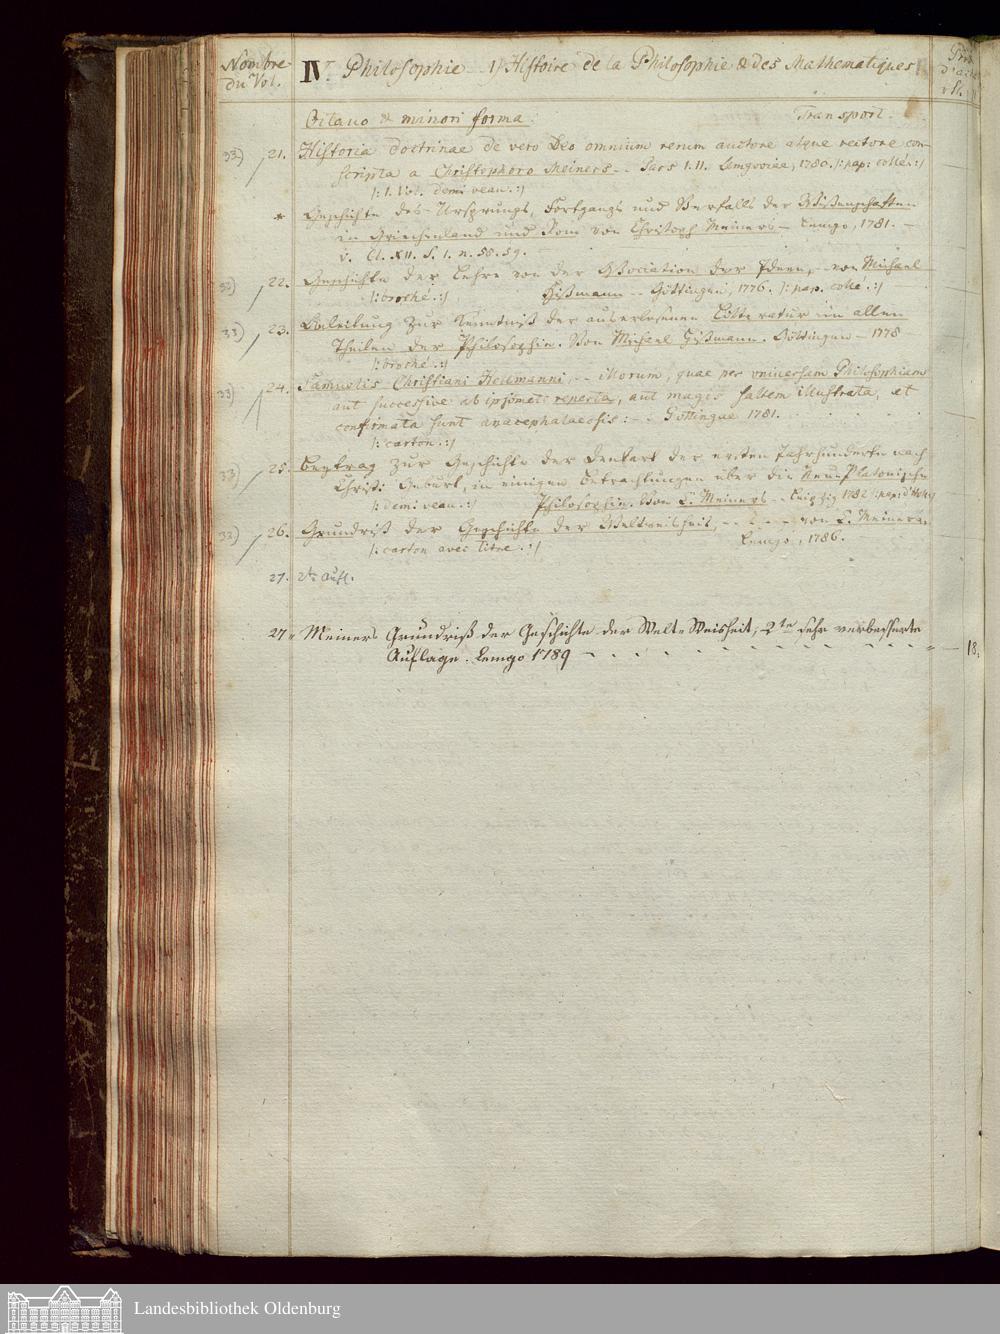 Nombre du Vol.
IV. Philosophie 1) Histoire de la Philosophie & des Mathematiques
Octavo & minori forma. Transport.
33) 21. Historia doctrinae de vero Deo omnium rerum auctore atque rectore con-
scripta a Christophoro Meiners -- Pars I. II. Lemgoviae, 1780. /: pap: collé. :/
/: 1. Vol. demi veau. :/
* Geschichte des Ursprungs, Fortgangs und Verfalls der Wißenschaften
in Griechenland und Rom von Christoph Meiners — Lemgo, 1781. —
v. Cl. XII. S. 1. n. 58. 59.
33) 22. Geschichte der Lehre von der Association der Ideen, -- von Michael
/: broché :/ Hißmann -- Göttingen, 1776. /: pap. collé. :/
33) 23. Anleitung zur Kenntniß der auserlesenen Litteratur in allen
Theilen der Philosophie. Von Michael Hißmann. Göttingen — 1778
/: broché. :/
33) 24. Samuelis Christiani Hollmanni, -- illorum, quae per universam Philosophiam
aut successive ab ipsomet reperta, aut magis saltem illustrata, et
confirmata sunt anacephalaeosis: -- Gottingae 1781.
/: carton. :/
33) 25. Beytrag zur Geschichte der Denkart der ersten Jahrhunderte nach
Christi Geburt, in einigen Betrachtungen über die Neu-Platonische
/: demi veau. :/ Philosophie. Von C. Meiners -- Leipzig 1782
33) 26. Grundriß der Geschichte der Weltweisheit, -- von C. Meiners.
/: carton avec titre. :/ Lemgo, 1786.
27. 2te Aufl.
27. Meiners Grundriß der Geschichte der Welt-Weisheit, 2te sehr verbesserte
Auflage. Lemgo 1789 — 18.
Landesbibliothek Oldenburg